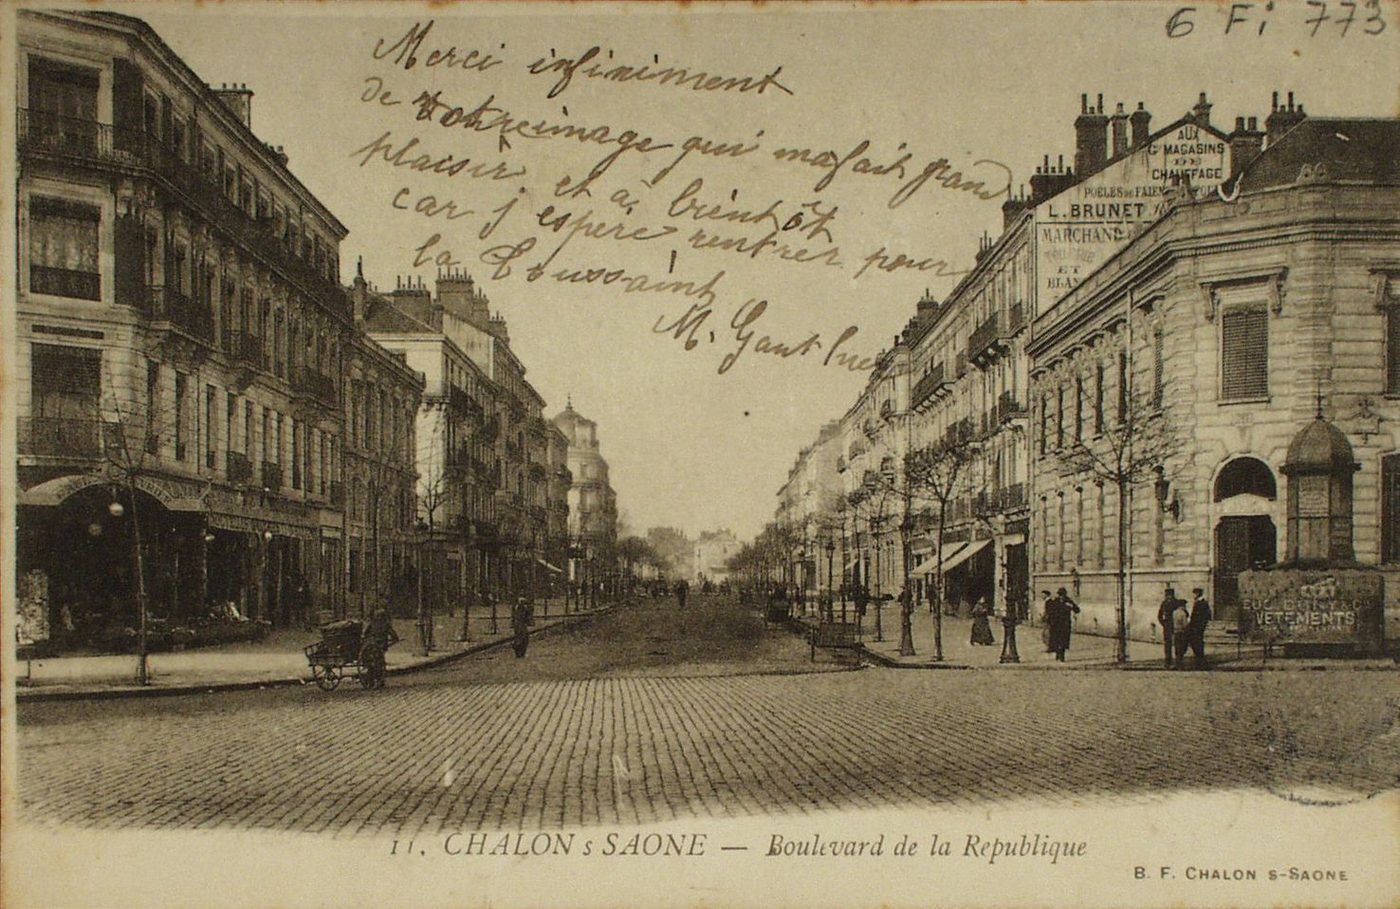 6 Fi 773
Merci infiniment
de votre image qui ma fait grand
plaisir et à bientôt
car j'espère rentrer pour
la Toussaint
M. Gant
AUX
Gds MAGASINS
DE
CHAUFFAGE
POÊLES DE FAIENCE
L. BRUNET
MARCHAND
ET
VETEMENTS
11. CHALON s SAONE — Boulevard de la Republique
B. F. CHALON S-SAONE